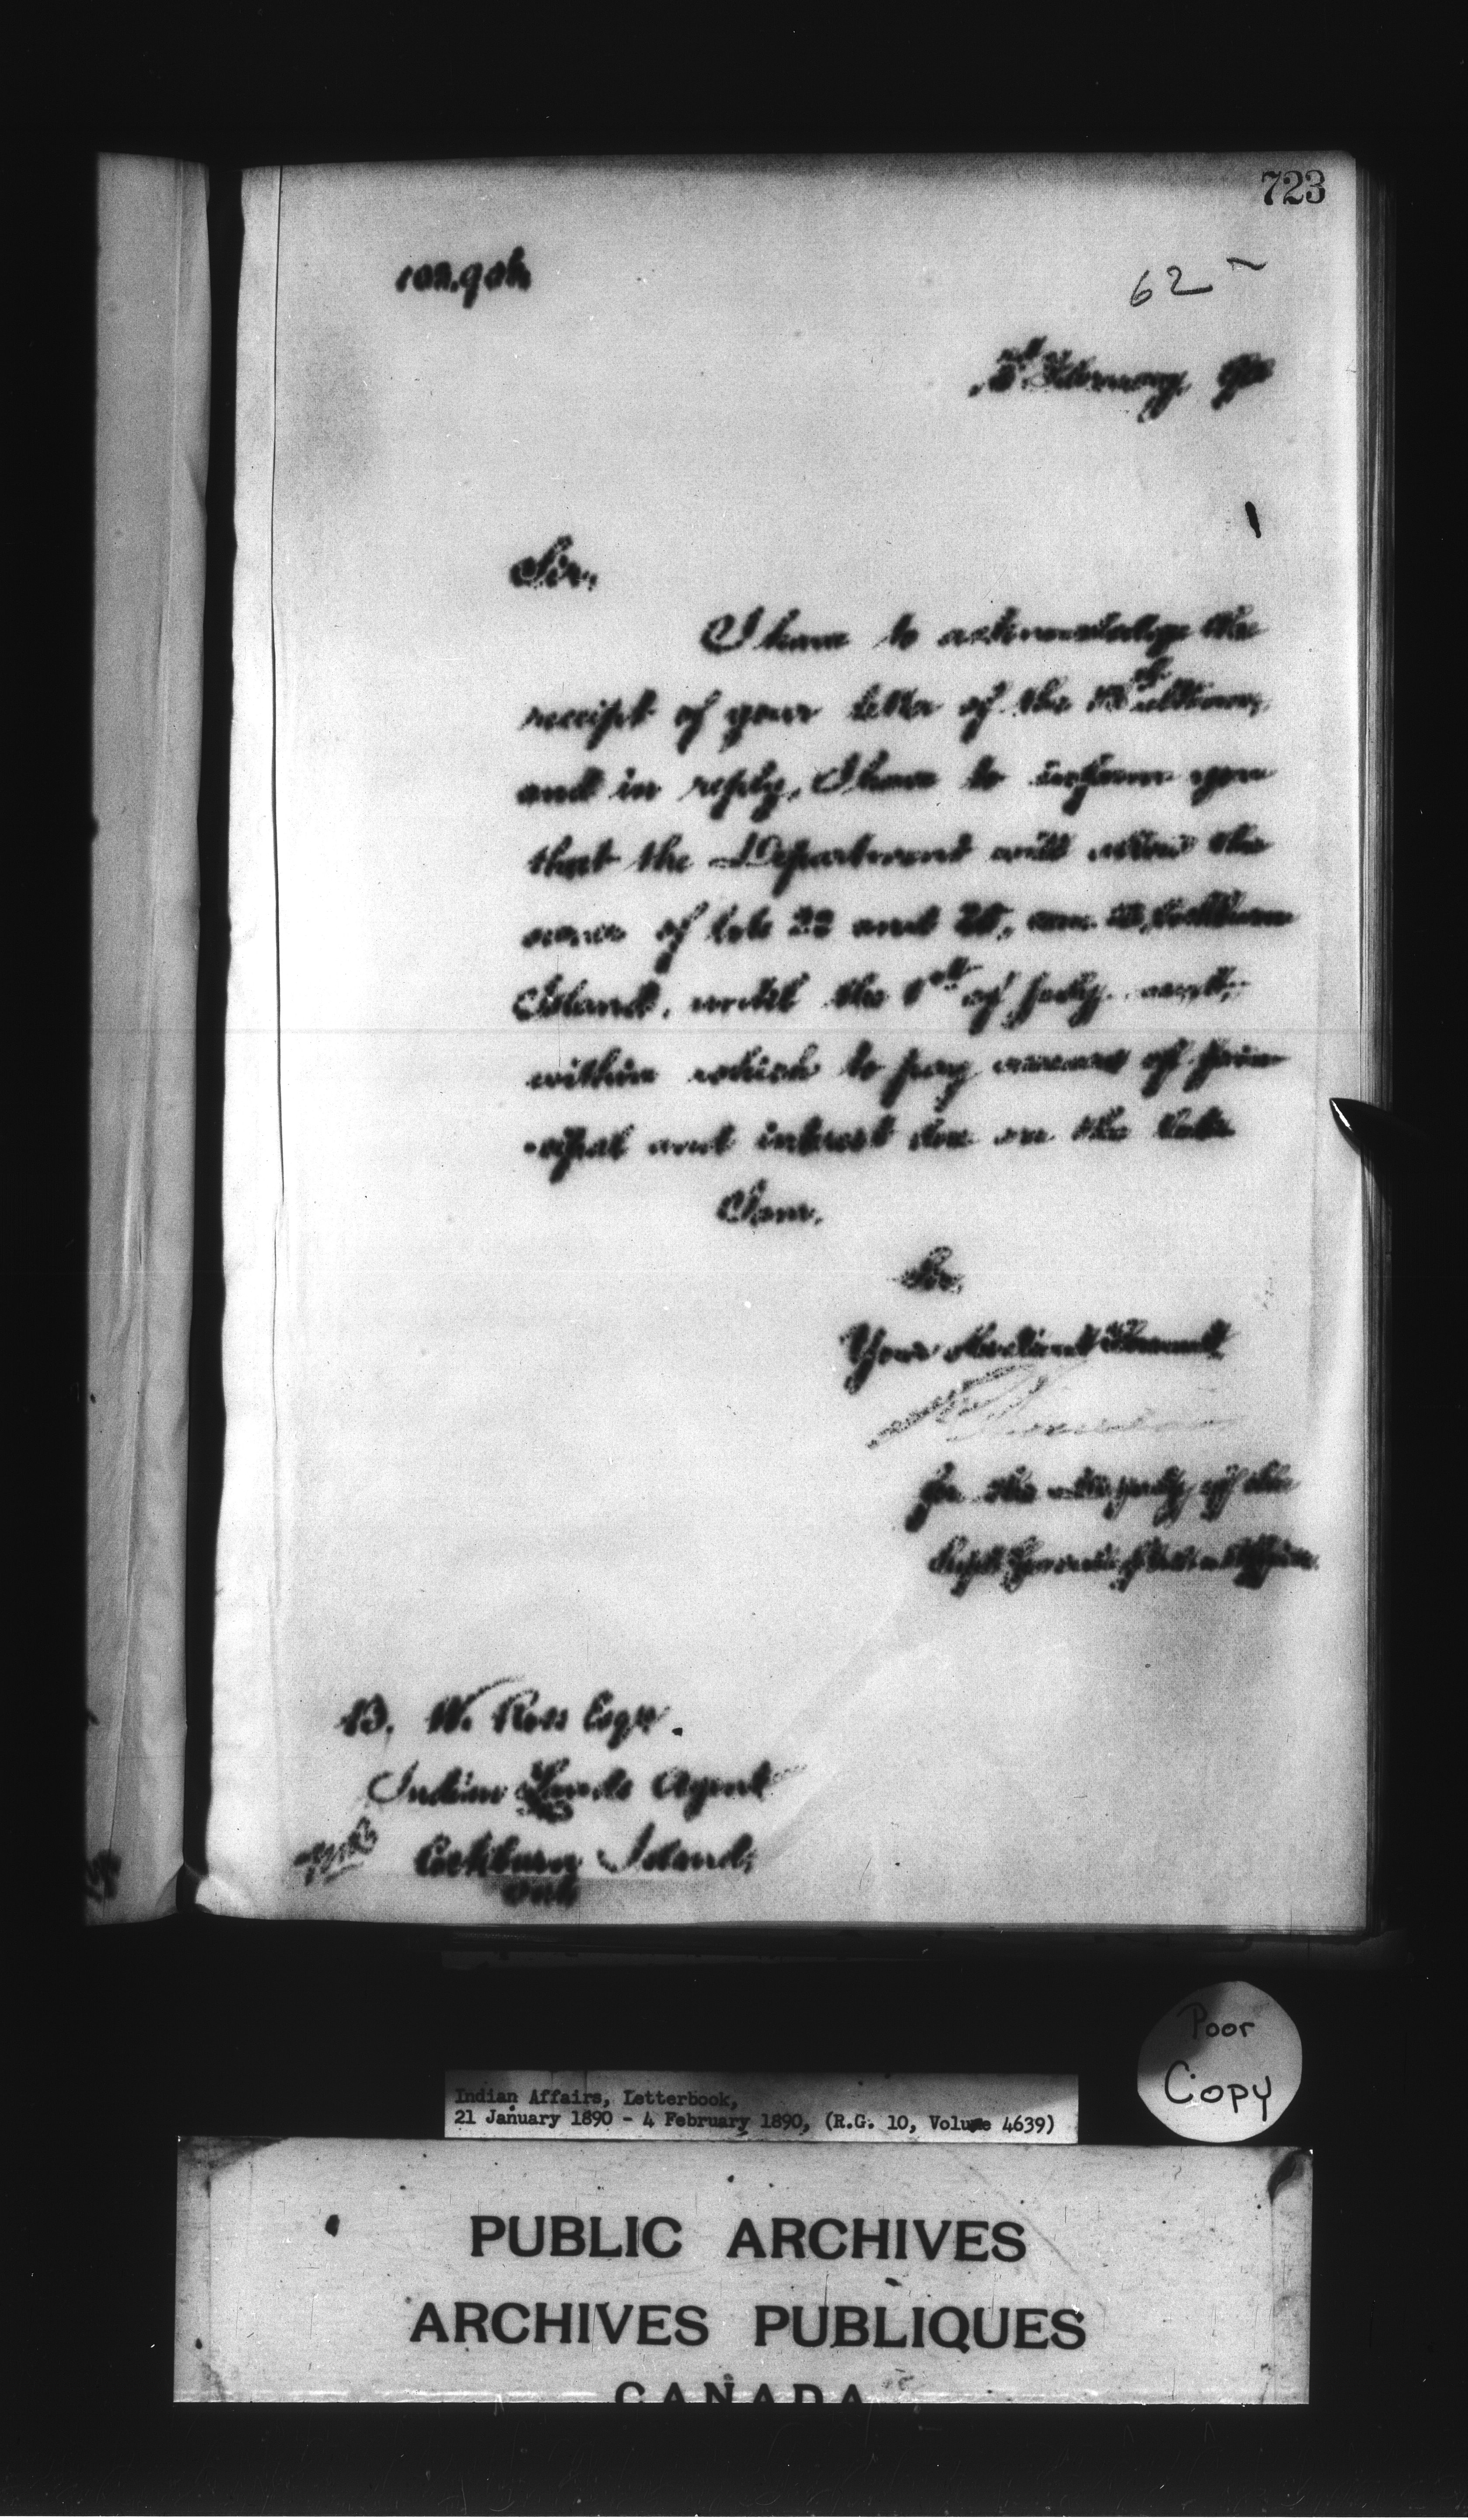 723
62
February, 90
Sir,
I have to acknowledge the
receipt of your letter of the 13th ultimo,
and in reply, I have to inform you
that the Department will allow the
owner of lots 22 and 25, con. Cockburn
Island, until the 1st of July next,
within which to pay arrears of prin
-cipal and interest due on the lots
I am,
Sir,
Your obedient Servant
for the deputy of the
Supt. General of Indian Affairs.
B. W. Ross Esqr.
Indian Lands Agent
Cockburn Island,
Ont
Poor
Copy
Indian Affairs, Letterbook,
21 January 1890 - 4 February 1890, (R.G. 10, Volume 4639)
PUBLIC ARCHIVES
ARCHIVES PUBLIQUES
CANADA